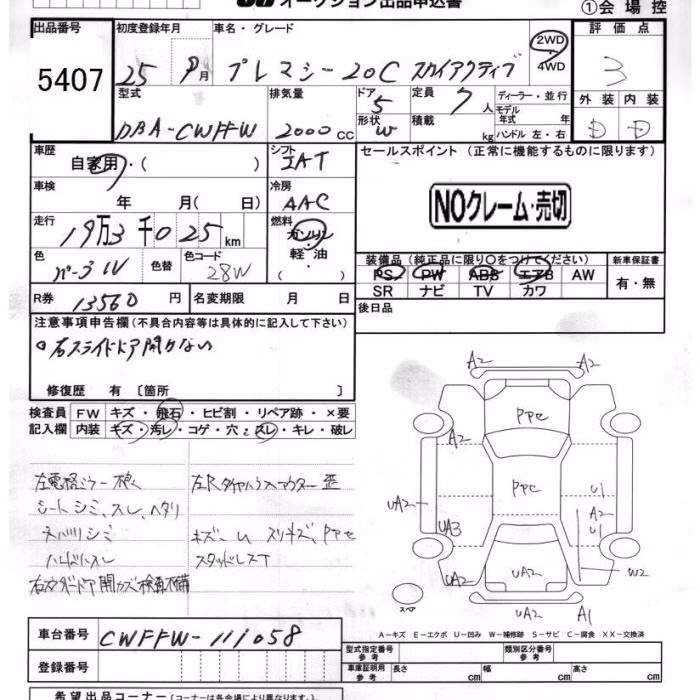 オークション出品申込書
①会場控
出品番号 初度登録年月 車名・グレード 2WD 4WD 評価点
5407 25 9月 プレマシー20C スカイアクティブ 3
型式 排気量 ドア 5 定員 7人 ディーラー・並行 外装 内装
モデル年式 年
DBA-CWFFW 2000cc 形状 W 積載 kg ハンドル 左・右 D D
車歴 自家用・( ) シフト IAT セールスポイント (正常に機能するものに限ります)
車検 年 月( 日) 冷房 AAC
NOクレーム・売切
走行 19万3千025km 燃料 ガソリン・軽油・( )
色 パール 色替 色コード 28W
装備品(純正品に限り〇をつけてください) 新車保証書
PS PW ABS エアB AW 有・無
SR ナビ TV カワ
R券 13560円 名変期限 月 日 後日品
注意事項申告欄(不具合内容等は具体的に記入して下さい)
右スライドドア開かない
修復歴 有 〔箇所 〕
検査員記入欄 FW キズ・飛石・ヒビ割・リペア跡・×要
内装 キズ・汚レ・コゲ・穴・スレ・キレ・破レ
シートシミ、スレ、ヘタリ
スタッドレス
A2
A2
PPセ
A2
UA2
PPセ
U1
A2
UA3
U1
UA2
UA2
W2
UA2
A1
スペア
A-キズ E-エクボ U-凹み W-補修跡 S-サビ C-腐食 XX-交換済
車台番号 CWFFW-111058
登録番号
型式指定番号 参考 類別区分番号 参考
車庫証明用 参考 長さ 幅 高さ
cm cm cm
希望出品コーナー(コーナーは各会場により